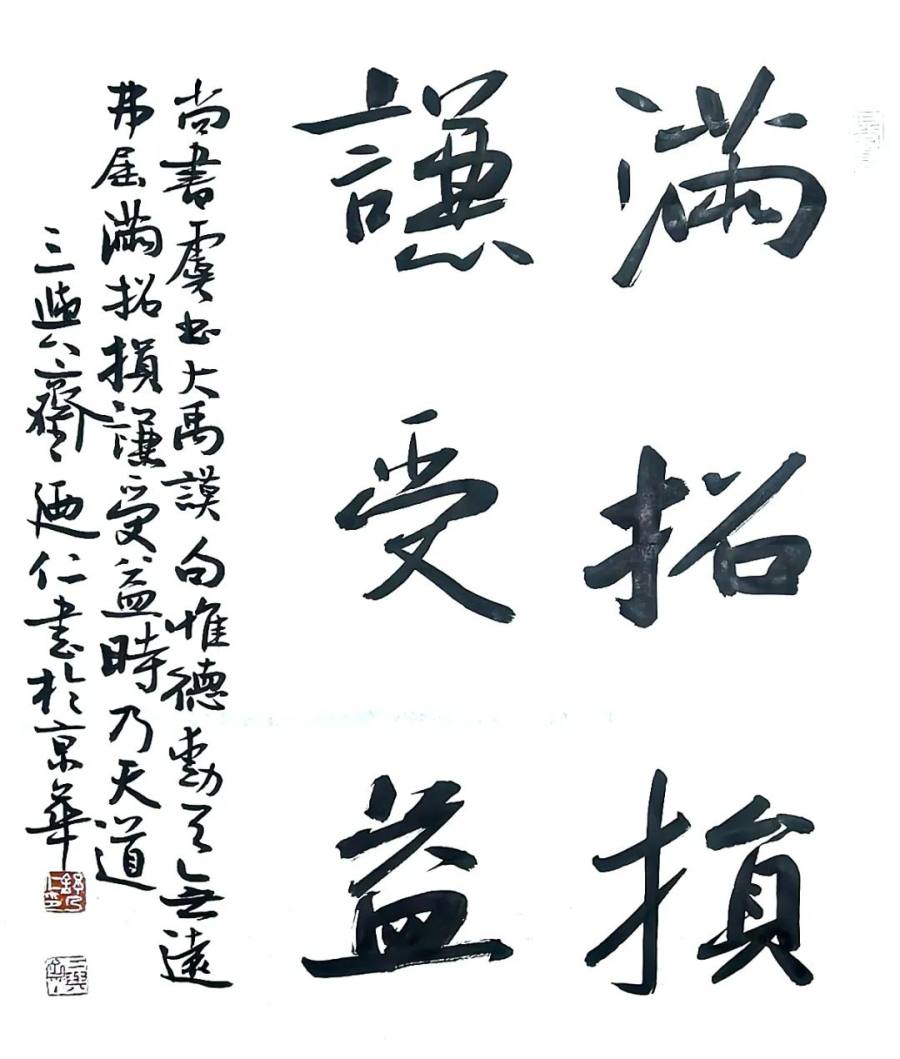 满招損
謙受益
尚書虞书大禹謨句惟德動天無遠
弗届满招損謙受益時乃天道
三興齋廼仁書於京華